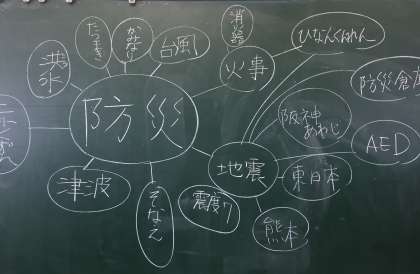 防災
洪水
たつまき
かみなり
台風
消火器
火事
ひなんくんれん
防災倉庫
阪神
あわじ
AED
地震
東日本
熊本
震度7
そなえ
津波